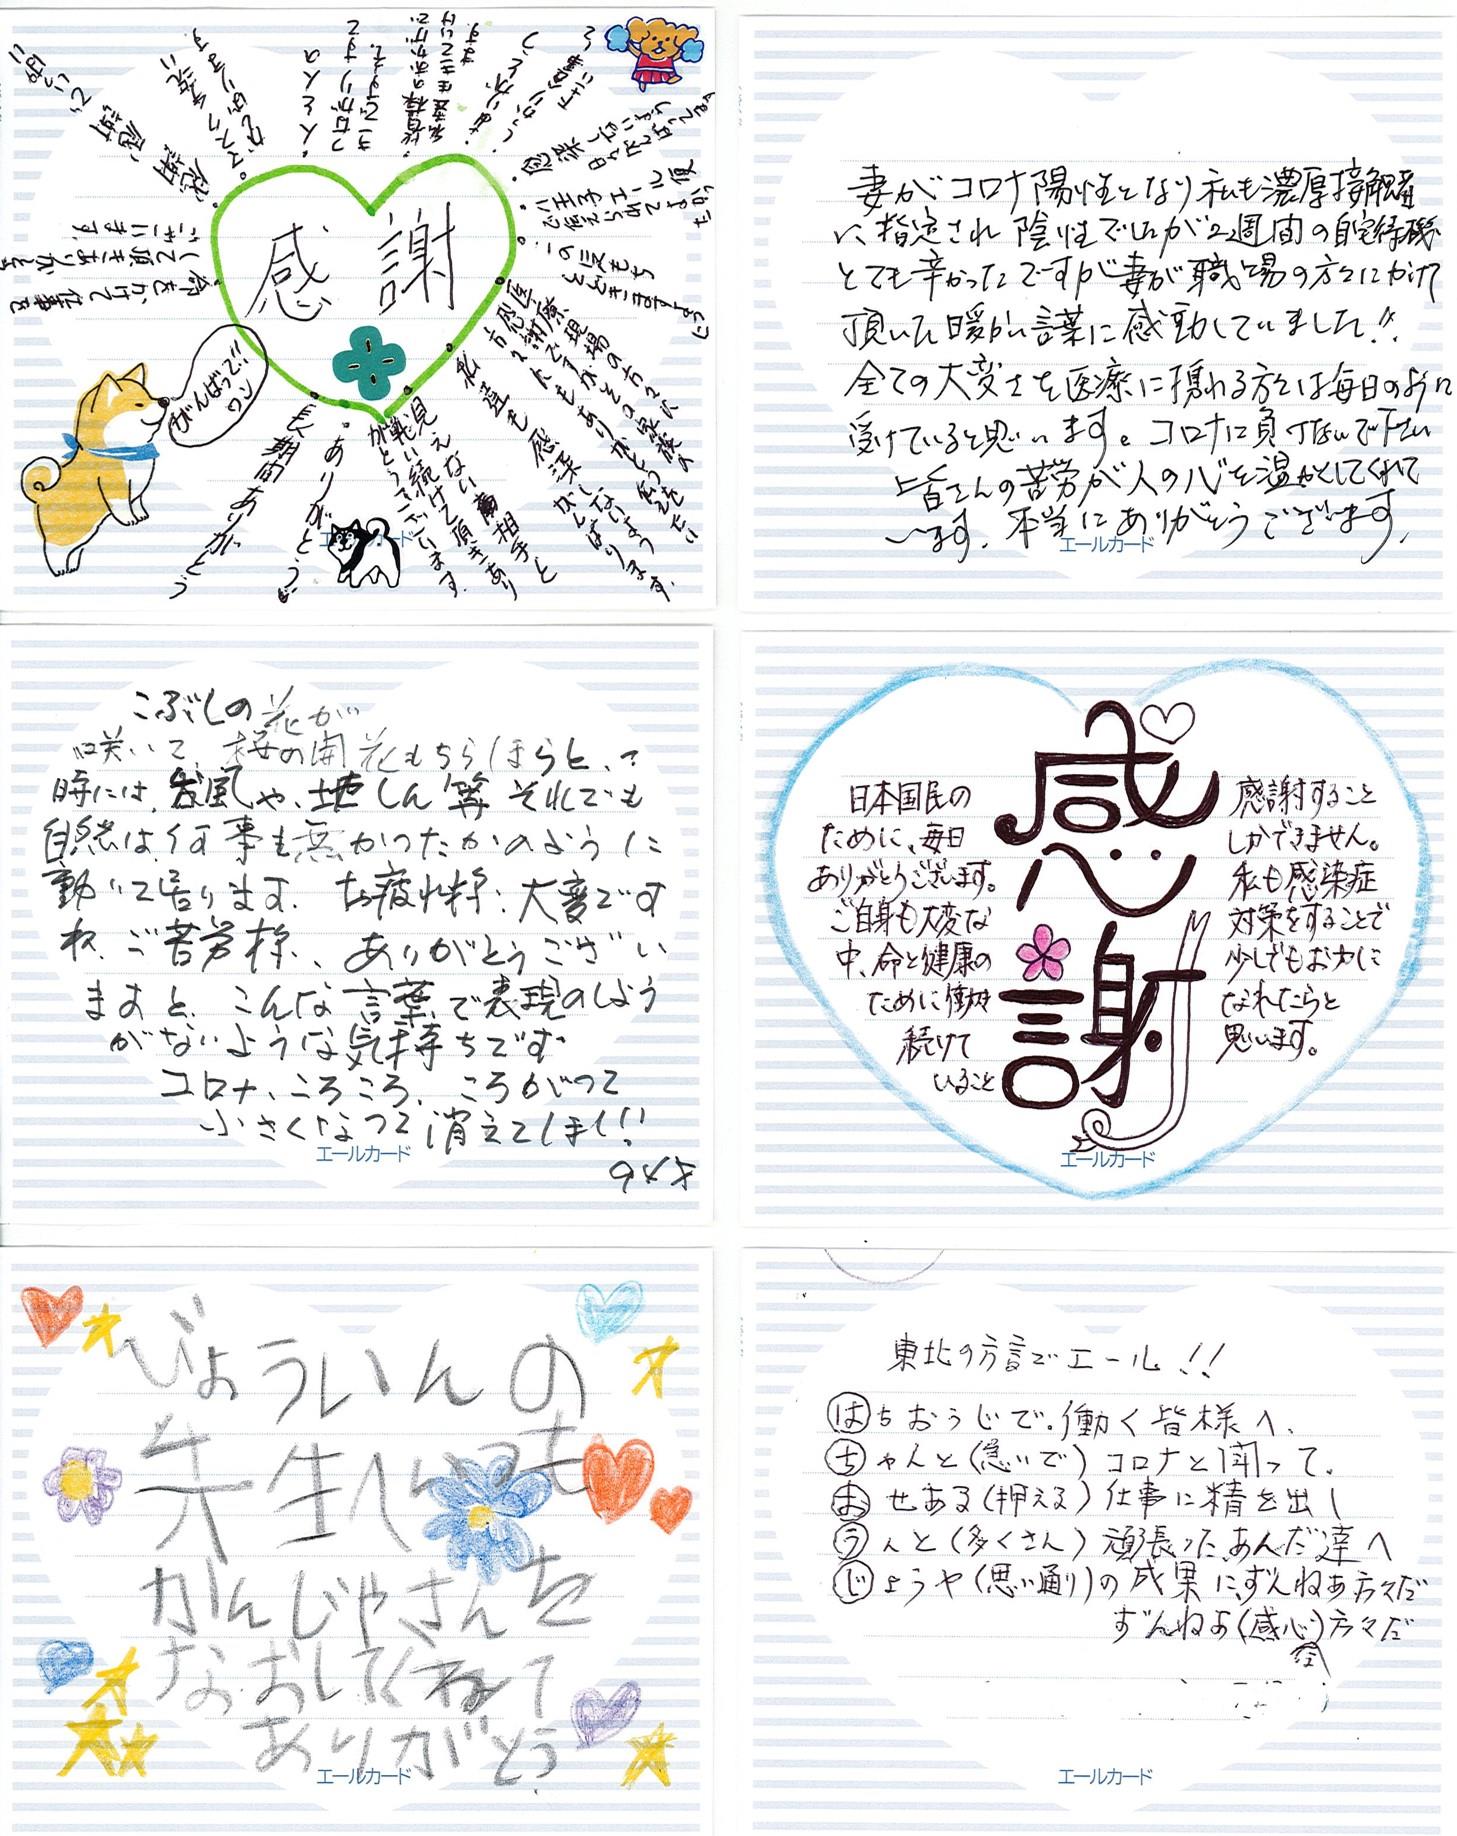 感謝
がんばって!!
ワン
感謝
感謝
感謝
でいっぱい
命をかけて仕事を
して頂きありがとう
ございます。
長期間ありがとう
ありがとう
見えない相手と
戦い続けて頂きあり
がとうございます。
医療現場の方々に
感謝ですがその家族の
方々にもありがとうを伝えたい
私達も感染しないよう
がんばります。
エールカード
妻がコロナ陽性となり私も濃厚接触者
に指定され陰性でしたが2週間の自宅待機
とても辛かったですが妻が職場の方々にかけて
頂いた暖かい言葉に感動していました!!
全ての大変さを医療に携われる方々は毎日のように
受けていると思います。コロナに負けないで下さい
皆さんの苦労が人の心を温かとしてくれて
います。本当にありがとうございます。
エールカード
こぶしの花が
咲いて、桜の開花もちらほらと、
時には、台風や、地しん等それでも
自然は、何事も無かったかのように
動いて居ります。お疲れ様、大変です
ね、ご苦労様、ありがとうござい
ますと、こんな言葉で表現のしよう
がないような気持ちです。
コロナ、ころころ、ころがって
小さくなって消えてしまい!!
エールカード
感謝
日本国民の
ために、毎日
ありがとうございます。
ご自身も大変な
中、命と健康の
ために働き
続けて
いること
感謝すること
しかできません。
私も感染症
対策をすることで
少しでもお力に
なれたらと
思います。
エールカード
びょういんの
先生へいつも
かんじゃさんを
なおしてくれて
ありがとう
エールカード
東北の方言でエール!!
はちおうじで。働く皆様へ、
ちゃんと(急いで)コロナと闘って、
おせある(押える)仕事に精を出し
うんと(多くさん)頑張った、あんだ達へ
じょうや(思い通り)の成果に、ずんねあ方々だ
ずんねあ(感心)方々だ
エールカード